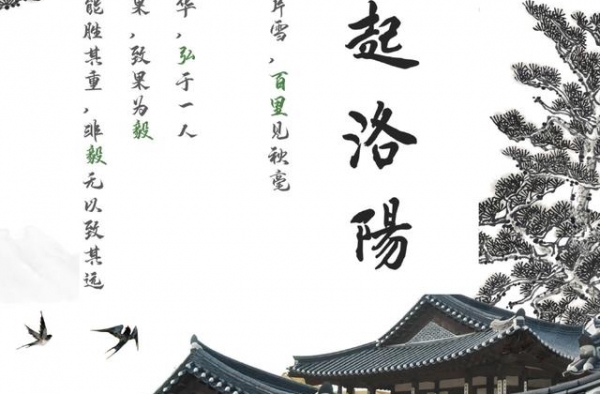 起洛陽
片雪，百里见秋毫
华，弘于一人
果，致果为毅
能胜其重，非毅无以致其远